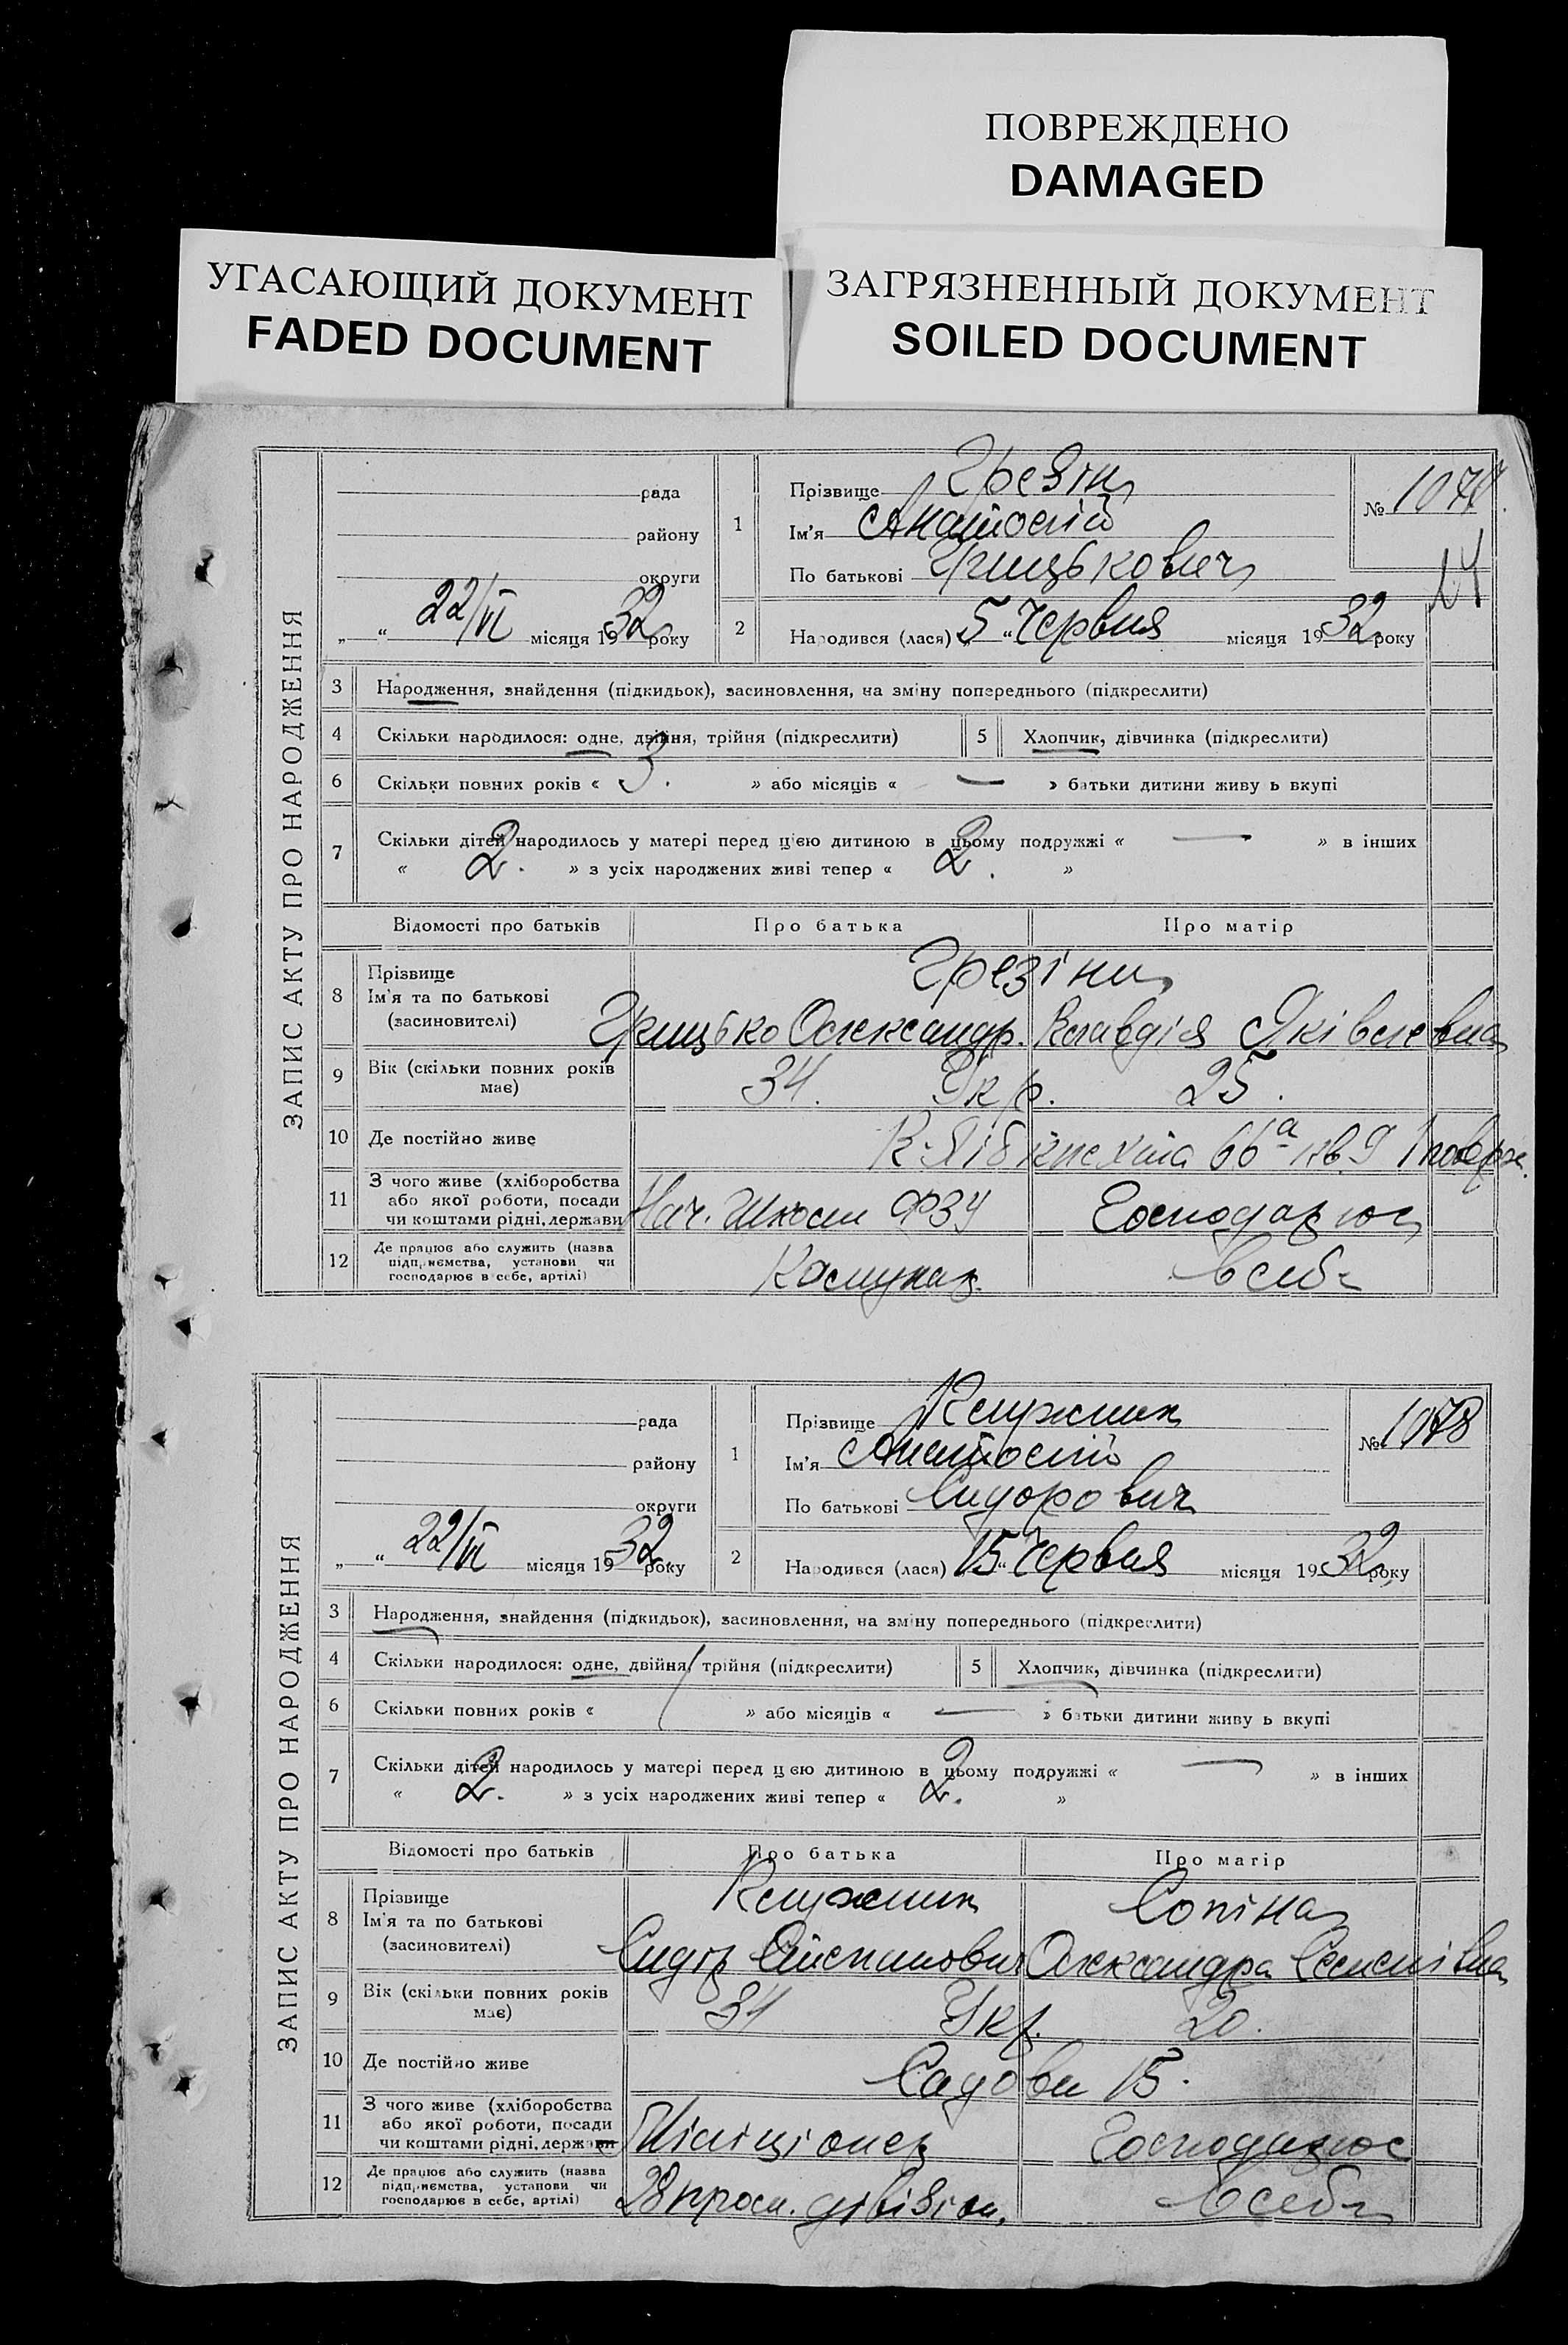 ПОВРЕЖДЕНО
DAMAGED
УГАСАЮЩИЙ ДОКУМЕНТ
FADED DOCUMENT
ЗАГРЯЗНЕННЫЙ ДОКУМЕНТ
SOILED DOCUMENT
ЗАПИС АКТУ ПРО НАРОДЖЕННЯ
рада
району
округи
„ “ 22/VI місяця 1932 року
1
Прізвище Грезін
Ім'я Анатолій
По батькові Грицькович
№ 1077
14
2 Народився (лася) „5“ Червня місяця 1932 року
3 Народження, знайдення (підкидьок), засиновлення, на зміну попереднього (підкреслити)
4 Скільки народилося: одне, двійня, трійня (підкреслити) 5 Хлопчик, дівчинка (підкреслити)
6 Скільки повних років « 3. » або місяців « — » батьки дитини живу ь вкупі
7 Скільки дітей народилось у матері перед цією дитиною в цьому подружжі « — » в інших
« 2. » з усіх народжених живі тепер « 2. »
Відомості про батьків Про батька Про матір
8 Прізвище Грезіни
Ім'я та по батькові
(засиновителі) Грицько Олександр. Клавдія Яківлевна
9 Вік (скільки повних років має) 34. Укр. 25.
10 Де постійно живе 66а кв. 9
11 З чого живе (хліборобства
або якої роботи, посади
чи коштами рідні, держави Нач. Школи ФЗУ Господарює
12 Де працює або служить (назва
підприємства, установи чи
господарює в себе, артілі) Комунар. в себе
ЗАПИС АКТУ ПРО НАРОДЖЕННЯ
рада
району
округи
„ “ 22/VI місяця 1932 року
1
Прізвище
Ім'я Анатолій
По батькові Сидорович
№ 1078
2 Народився (лася) „15“ Червня місяця 1932 року
3 Народження, знайдення (підкидьок), засиновлення, на зміну попереднього (підкреслити)
4 Скільки народилося: одне, двійня, трійня (підкреслити) 5 Хлопчик, дівчинка (підкреслити)
6 Скільки повних років « / » або місяців « — » батьки дитини живу ь вкупі
7 Скільки дітей народилось у матері перед цією дитиною в цьому подружжі « — » в інших
« 2. » з усіх народжених живі тепер « 2. »
Відомості про батьків Про батька Про матір
8 Прізвище Сопіна
Ім'я та по батькові
(засиновителі) Сидір Степанович Олександра Семенівна
9 Вік (скільки повних років має) 31 Укр. 20.
10 Де постійно живе Садова 15.
11 З чого живе (хліборобства
або якої роботи, посади
чи коштами рідні, держави Міліціонер Господарює
12 Де працює або служить (назва
підприємства, установи чи
господарює в себе, артілі) 28 пром. дівізіон. В себе